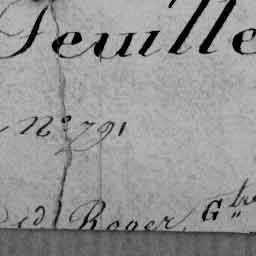 Feuille
No 791
Roger, Gtre